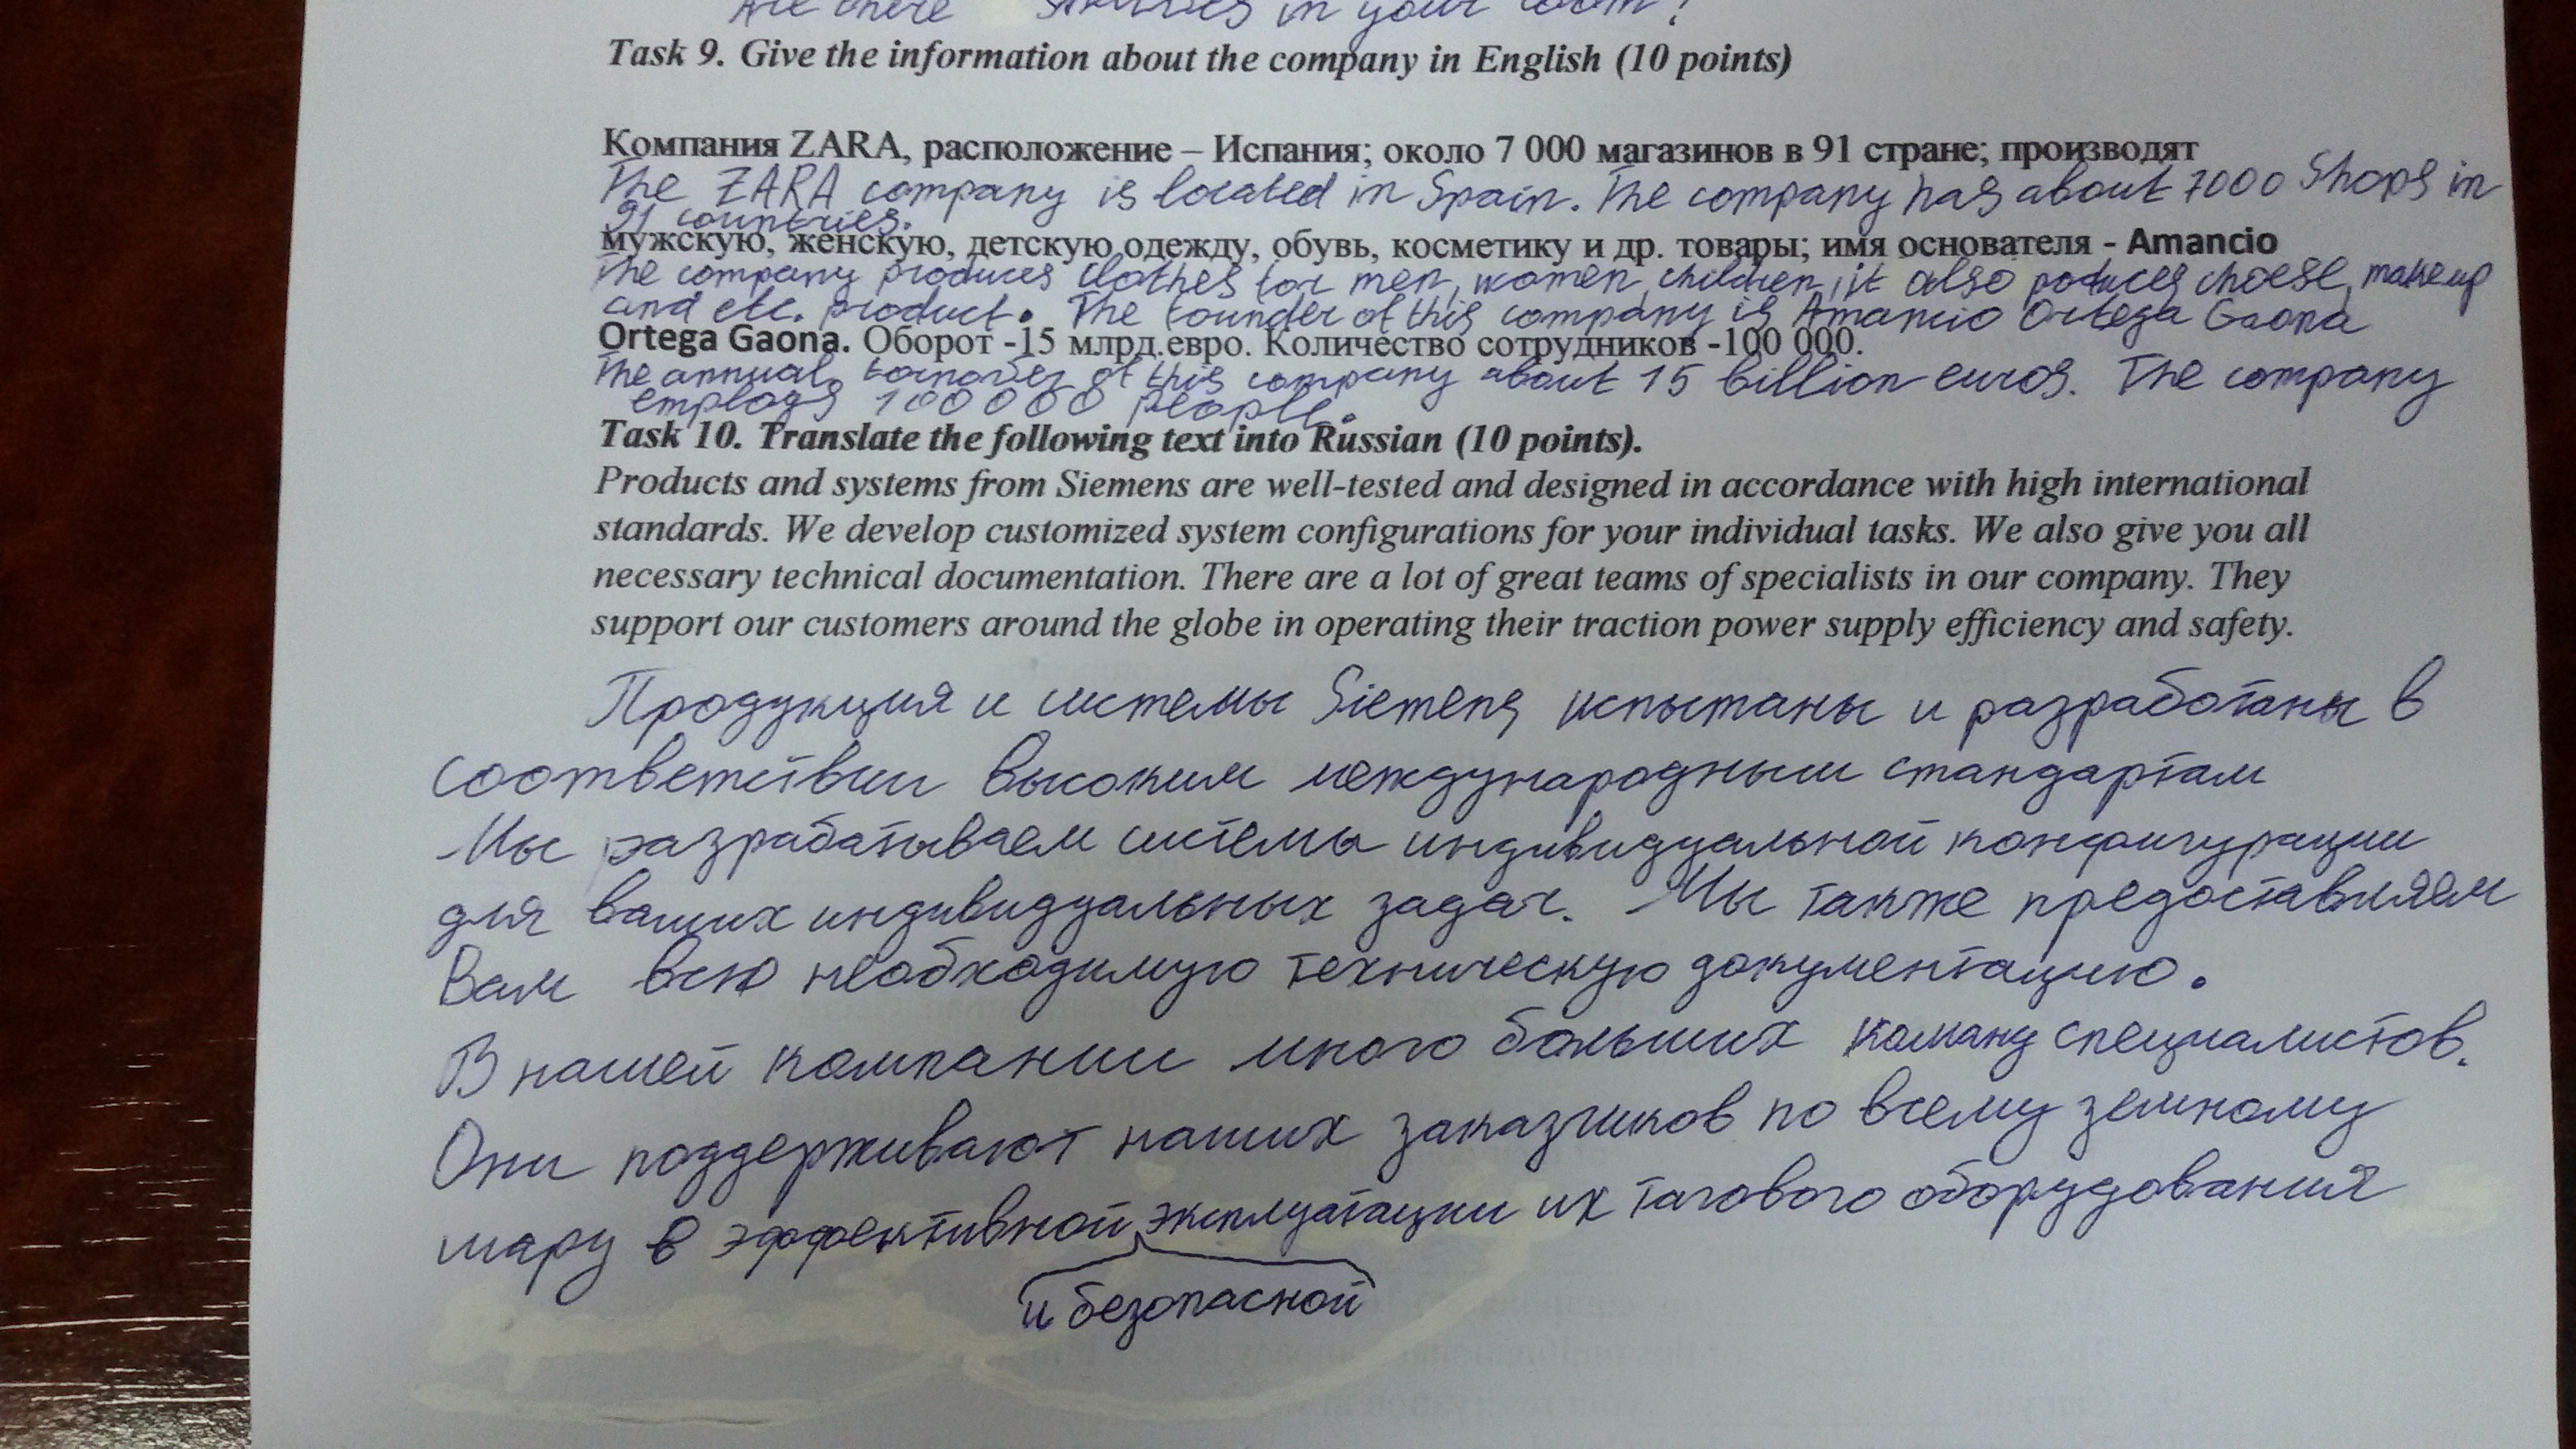 Are there in your room?
Task 9. Give the information about the company in English (10 points)
Компания ZARA, расположение – Испания; около 7 000 магазинов в 91 стране; производят
The ZARA company is located in Spain. The company has about 7000 Shops in
91 countries.
мужскую, женскую, детскую одежду, обувь, косметику и др. товары; имя основателя - Amancio
The company produces clothes for men, women, children, it also poduces choese, make up
and etc. product. The founder of this company is Amancio Ortega Gaona
Ortega Gaona. Оборот -15 млрд.евро. Количество сотрудников -100 000.
The annual tornover of this company about 15 billion euros. The company
employs 100 000 people.
Task 10. Translate the following text into Russian (10 points).
Products and systems from Siemens are well-tested and designed in accordance with high international
standards. We develop customized system configurations for your individual tasks. We also give you all
necessary technical documentation. There are a lot of great teams of specialists in our company. They
support our customers around the globe in operating their traction power supply efficiency and safety.
Продукция и системы Siemens испытаны и разработаны в
соответствии высоким международным стандартам
Мы разрабатываем системы индивидуальной конфигурации
для ваших индивидуальных задач. Мы также предоставляем
Вам всю необходимую техническую документацию.
В нашей компании много больших команд специалистов.
Они поддерживают наших заказчиков по всему земному
шару в эффективной эксплуатации их тягового оборудования
и безопасной